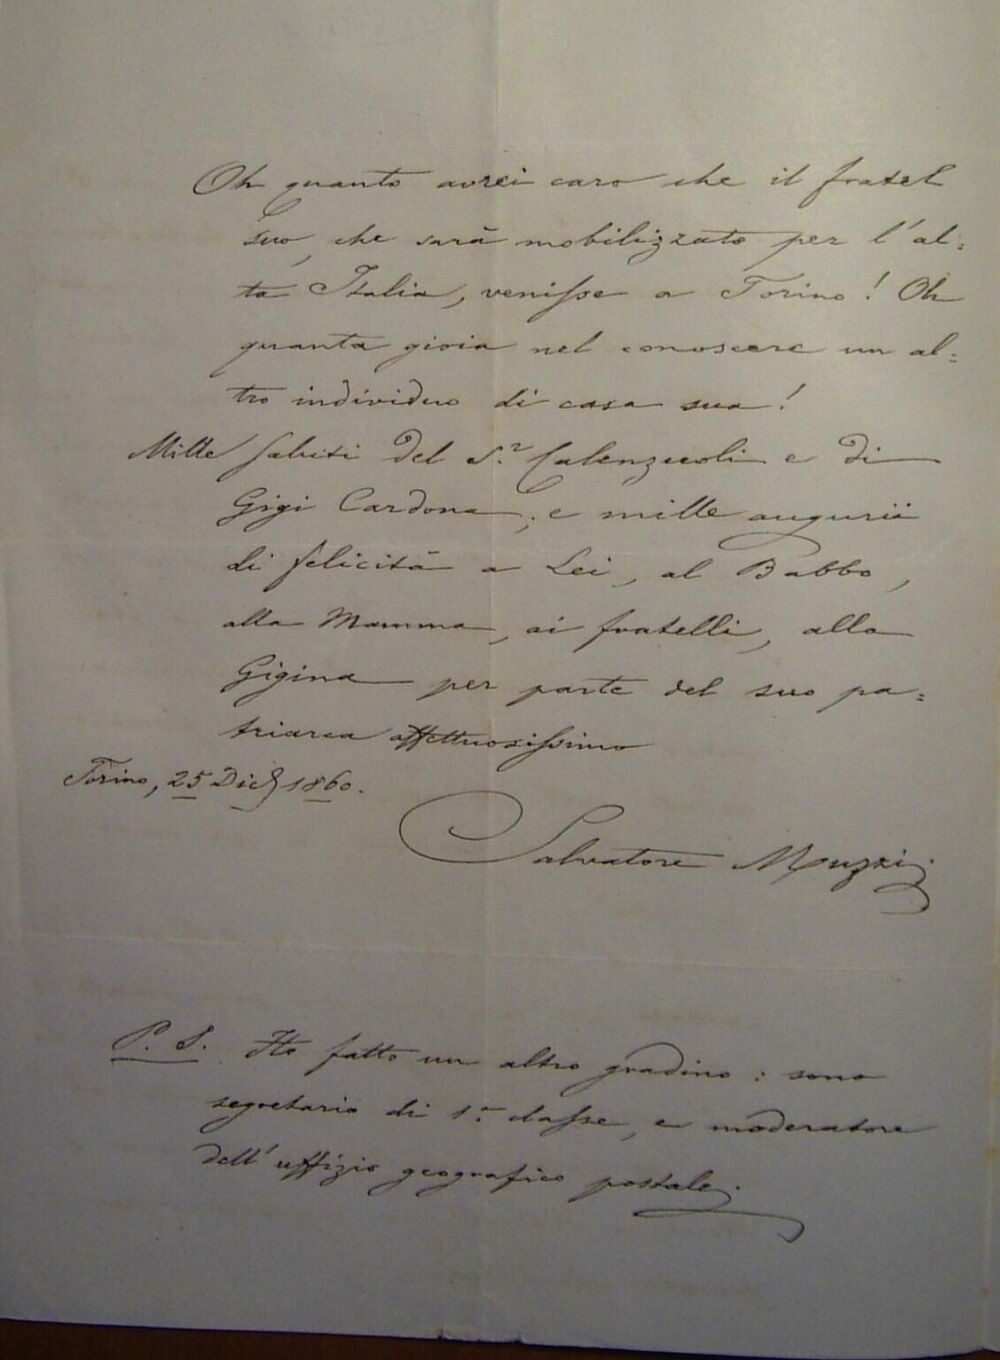 Oh quanto avrei caro che il fratel
suo, che sarà mobilizzato per l'al=
ta Italia, venisse a Torino! Oh
quanta gioia nel conoscere un al=
tro individuo di casa sua!
Mille saluti del S.r Calenzuoli e di
Gigi Cardona; e mille augurii
di felicità a Lei, al Babbo,
alla Mamma, ai fratelli, alla
Gigina per parte del suo pa=
triarca affettuosissimo
Torino, 25 Dic 1860.
Salvatore Muzzi
P. S. Ho fatto un altro gradino: sono
segretario di 1.a classe, e moderatore
dell'uffizio geografico postale.